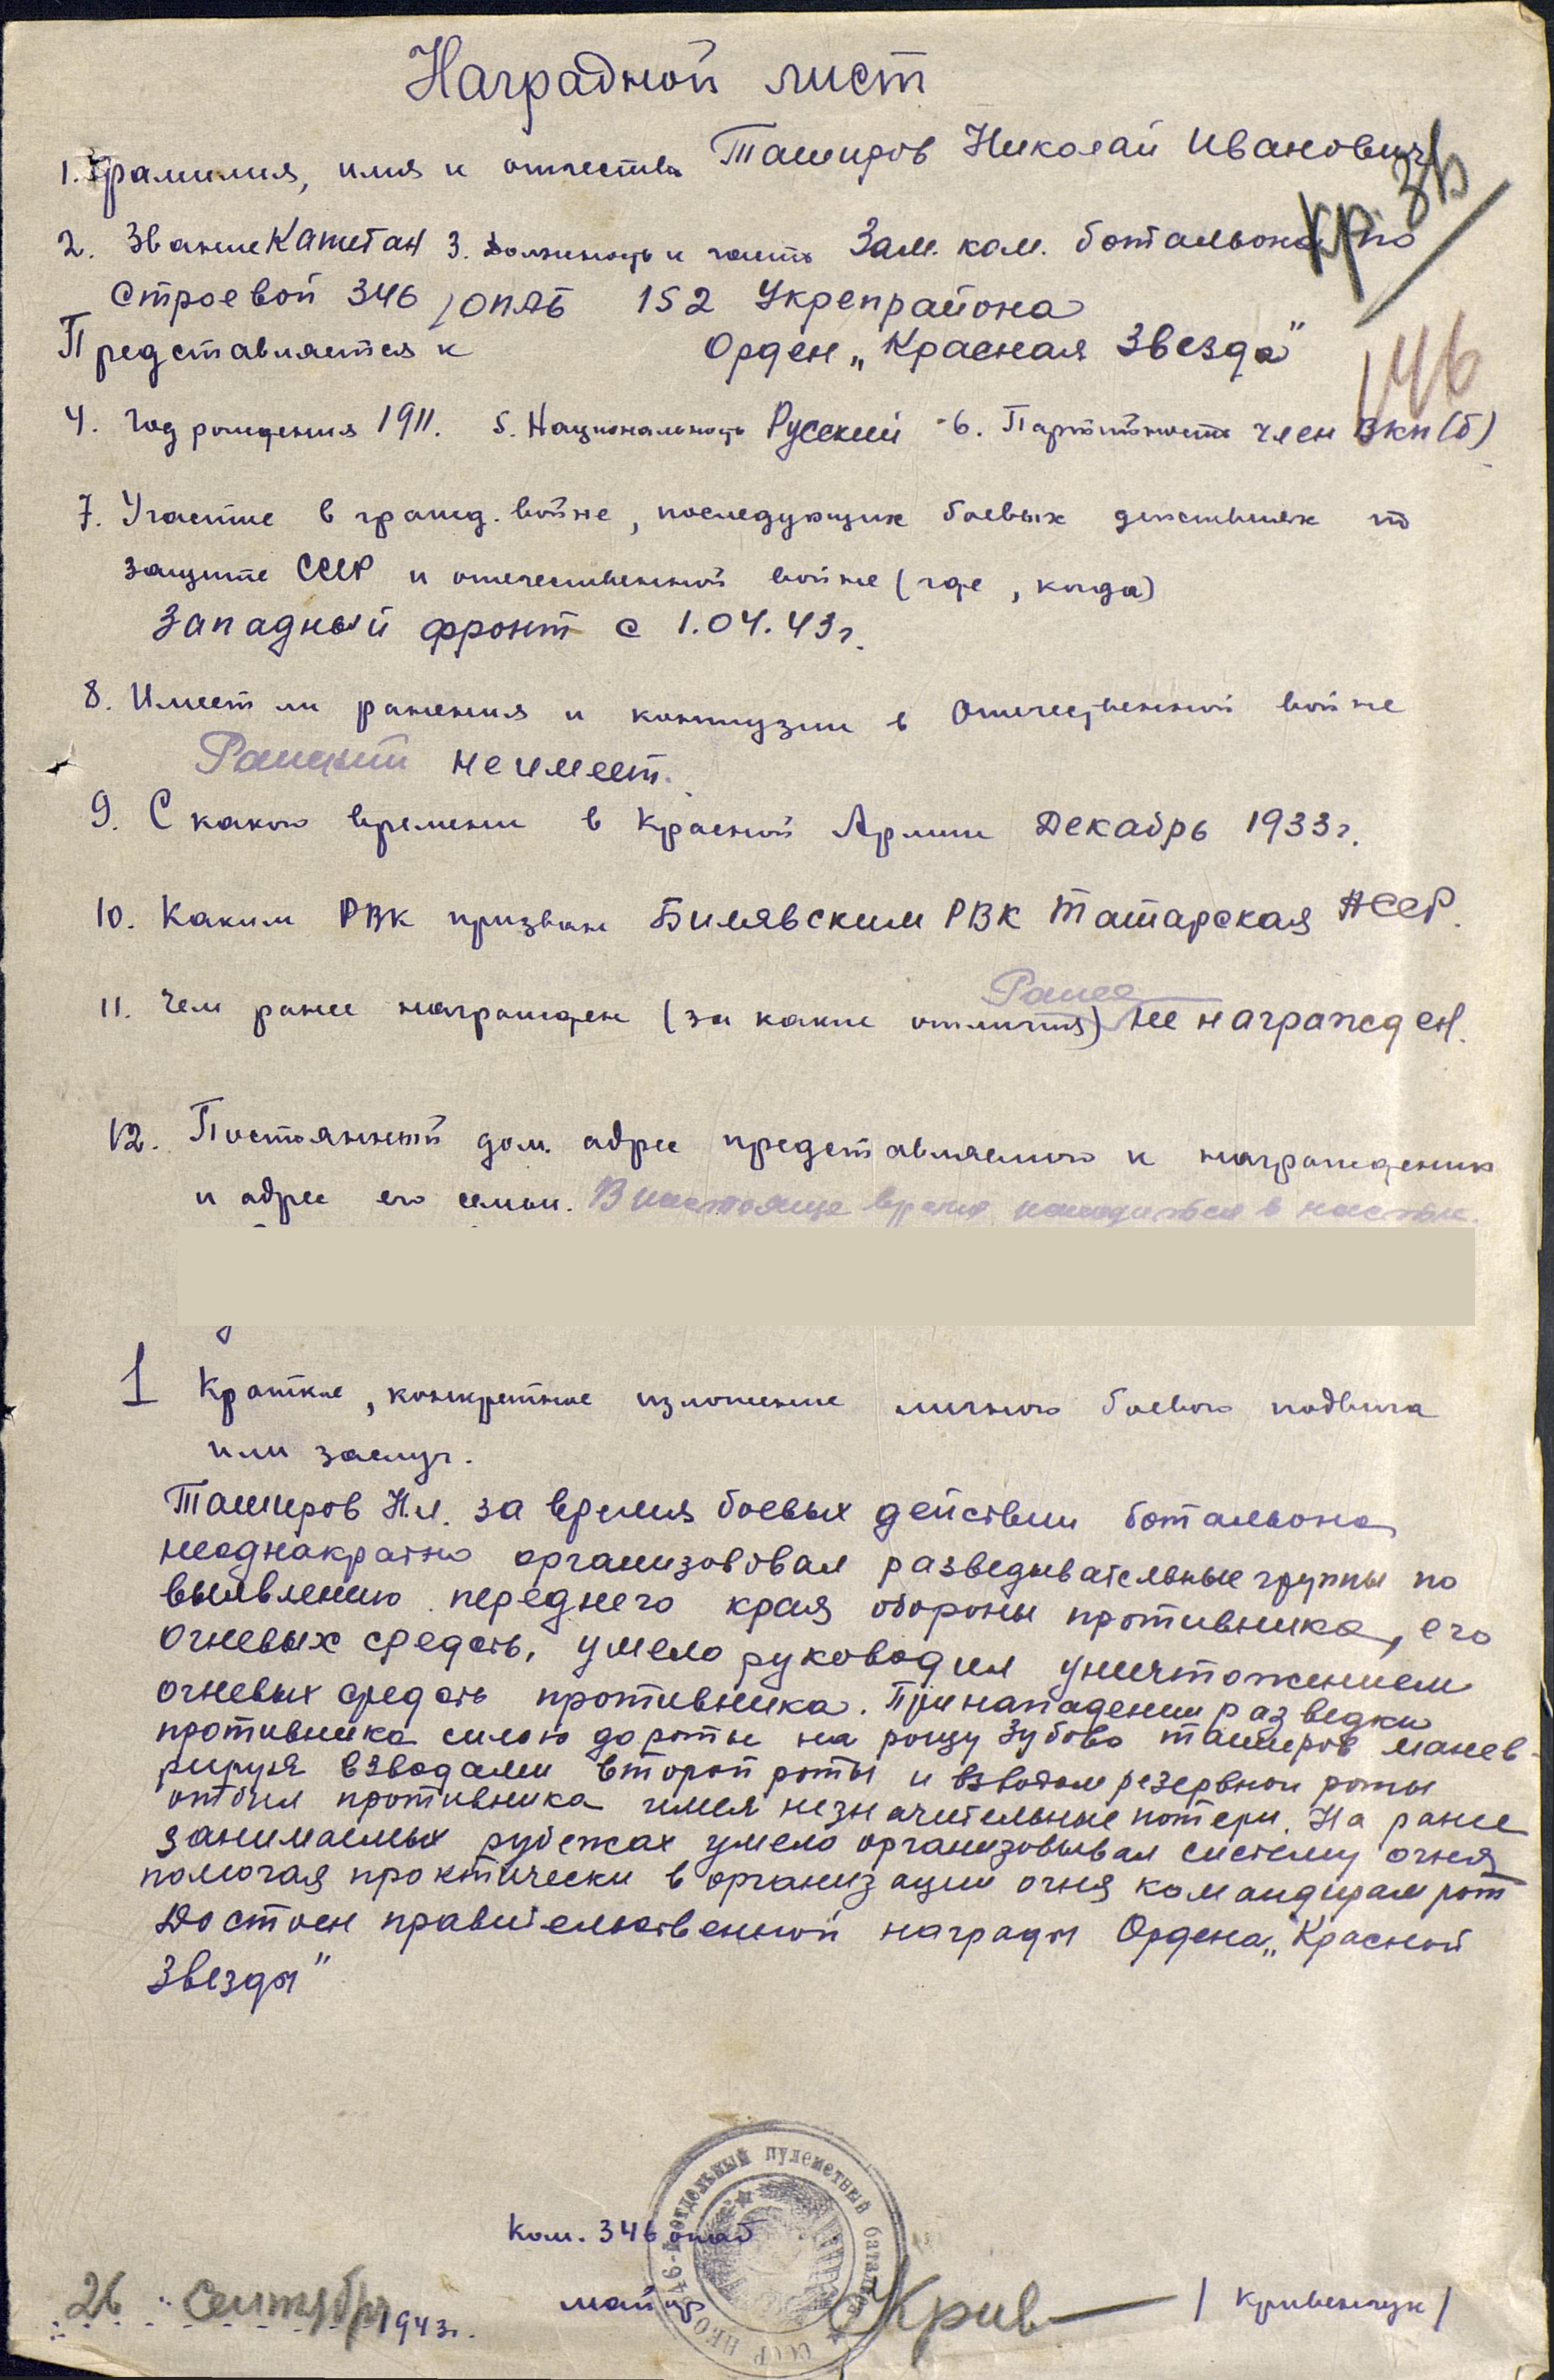 Наградной лист
1. Фамилия, имя и отчество Таширов Николай Иванович
Кр. Зв
2. Звание Капитан 3. Должность и часть Зам. ком.ботальона по
строевой 346 ОПАБ 152 Укрепрайона
Представляется к Орден „Красная Звезда"
146
4. Год рождения 1911. 5. Национальность Русский 6. Партийность член ВКП(б)
7. Участие в гражд. войне, последующих боевых действиях по
защите СССР и отечественной войне (где, когда)
Западный фронт с 1.04.43г.
8. Имеет ли ранения и контузии в Отечественной войне
не имеет.
9. С какого времени в Красной Армии Декабрь 1933г.
10. Каким РВК призван Билявским РВК Татарская АССР.
11. Чем ранее награжден (за какие отличия) Ранее не награжден.
12. Постоянный дом. адрес представляемого к награждению
и адрес его семьи. В настояще время находиться в
1 Краткое, конкретное изложение личного боевого подвига
или заслуг.
Таширов Н.И. за время боевых действии ботальона
неоднакратно организововал разведывательные группы по
выявлению переднего края обороны противника, его
огневых средств, умело руководил уничтожением
огневых средств противника. При нападении разведки
противника силою до роты на рощу Зубово Таширов манев-
рируя взводами второй роты и взводом резервной роты
отбил противника имея незначительные потери. На ранее
занимаемых рубежах умело организовывал систему огня
помогая проктически в организации огня командирам рот
Достоен правительственной награды Ордена „Красной
Звезды"
346-й отдельный пулеметный батальон
НКО СССР
Ком. 346 опаб
майор Крив / Кривенчук /
26 Сентября 1943г.